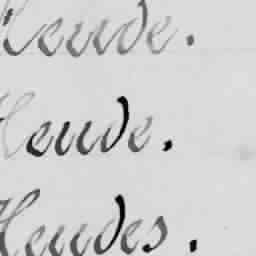 Heude.
Heude.
Heudes.